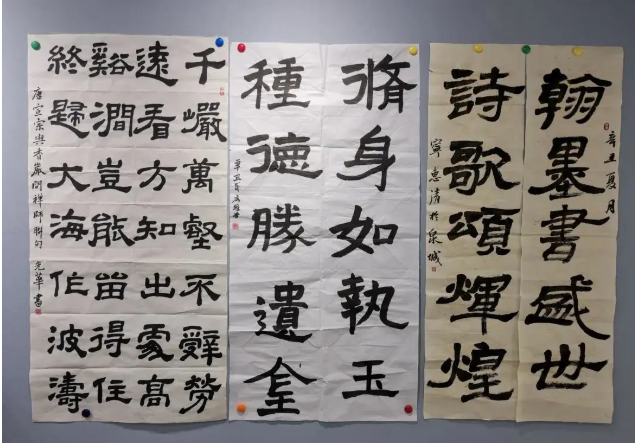 辛丑夏月
翰墨書盛世
詩歌頌煇煌
寧惠清於泉城
脩身如執玉
種德勝遺金
辛丑夏
千巖萬壑不辭勞
遠看方知出處高
谿澗豈能留得住
終歸大海作波濤
唐宣宗與香嚴閑禪師聯句 光華書